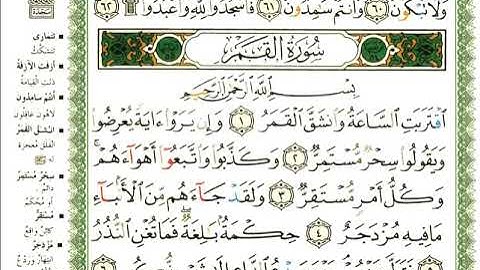 وَلَا تَبْكُونَ ٦٠ وَأَنتُمْ سَٰمِدُونَ ٦١ فَٱسْجُدُوا۟ لِلَّهِ وَٱعْبُدُوا۟ ۩ ٦٢
سُورَةُ القَمَر
بِسْمِ ٱللَّهِ ٱلرَّحْمَٰنِ ٱلرَّحِيمِ
ٱقْتَرَبَتِ ٱلسَّاعَةُ وَٱنشَقَّ ٱلْقَمَرُ ١ وَإِن يَرَوْا۟ ءَايَةً يُعْرِضُوا۟
وَيَقُولُوا۟ سِحْرٌ مُّسْتَمِرٌّ ٢ وَكَذَّبُوا۟ وَٱتَّبَعُوٓا۟ أَهْوَآءَهُمْ ۚ
وَكُلُّ أَمْرٍ مُّسْتَقِرٌّ ٣ وَلَقَدْ جَآءَهُم مِّنَ ٱلْأَنۢبَآءِ
مَا فِيهِ مُزْدَجَرٌ ٤ حِكْمَةٌۢ بَٰلِغَةٌ ۖ فَمَا تُغْنِ ٱلنُّذُرُ
تتمارى
تتشكّك
أزفت الآزفة
دنت القيامة
أنتم سامدون
لاهون غافلون
انشقّ القمر
انفلق معجزة
له ﷺ
سحر مستمرّ
دائم
أو محكم
مستقرّ
كائن واقع
مزدجر
انتهار وردع